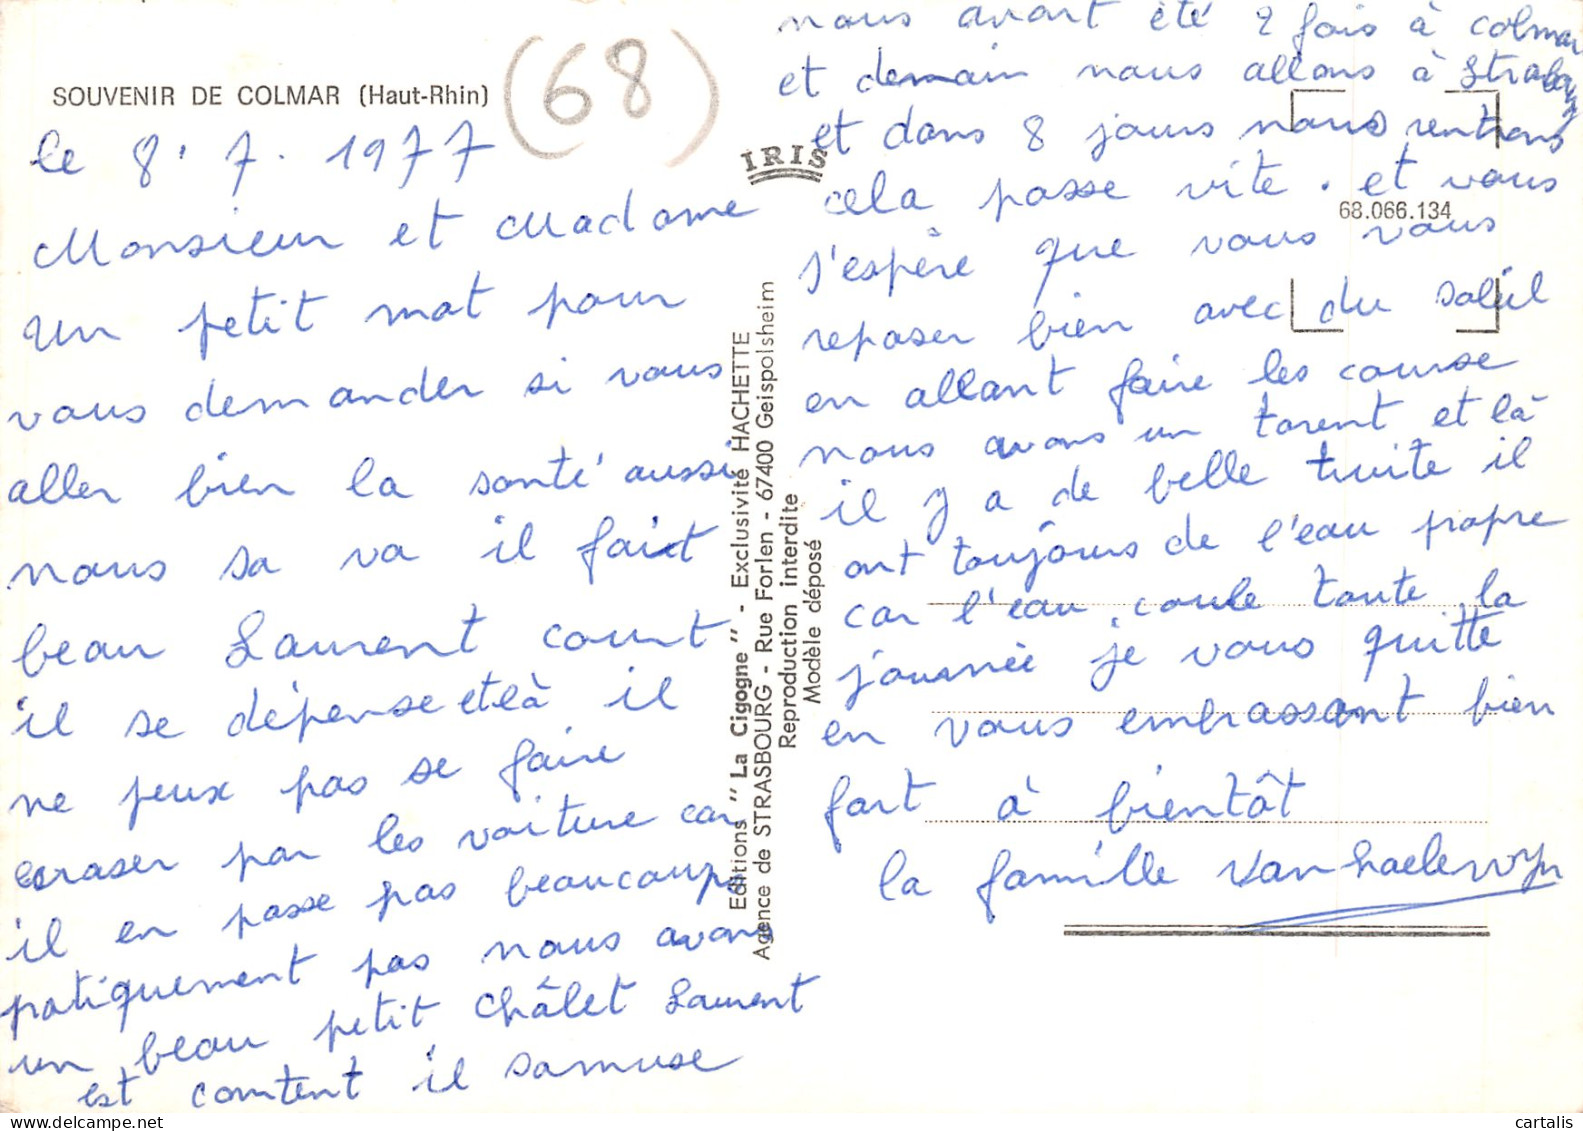 SOUVENIR DE COLMAR (Haut-Rhin)
(68)
le 8.7.1977
Monsieur et Madame
un petit mot pour
vous demander si vous
aller bien la santé aussi
nous sa va il fait
beau Laurent court
il se dépense et là il
ne peux pas se faire
ecraser par les voiture car
il en passe pas beaucoup
patiquement pas nous avons
un beau petit châlet Laurent
est contént il samuse
IRIS
Editions "La Cigogne" - Exclusivité HACHETTE
Agence de STRASBOURG - Rue Forlen - 67400 Geispolsheim
Reproduction interdite
Modèle déposé
nous avont été 2 fois à colmar
et demain nous allons à Strasbourg
et dans 8 jours nous rentrons
cela passe vite. et vous
68.066.134
j'espère que vous vous
reposer bien avec du soleil
en allant faire les course
nous avons un torent et là
il y a de belle truite il
ont toujours de l'eau propre
car l'eau coule toute la
journée je vous quitte
en vous embrassant bien
fort à bientôt
la famille
cartalis